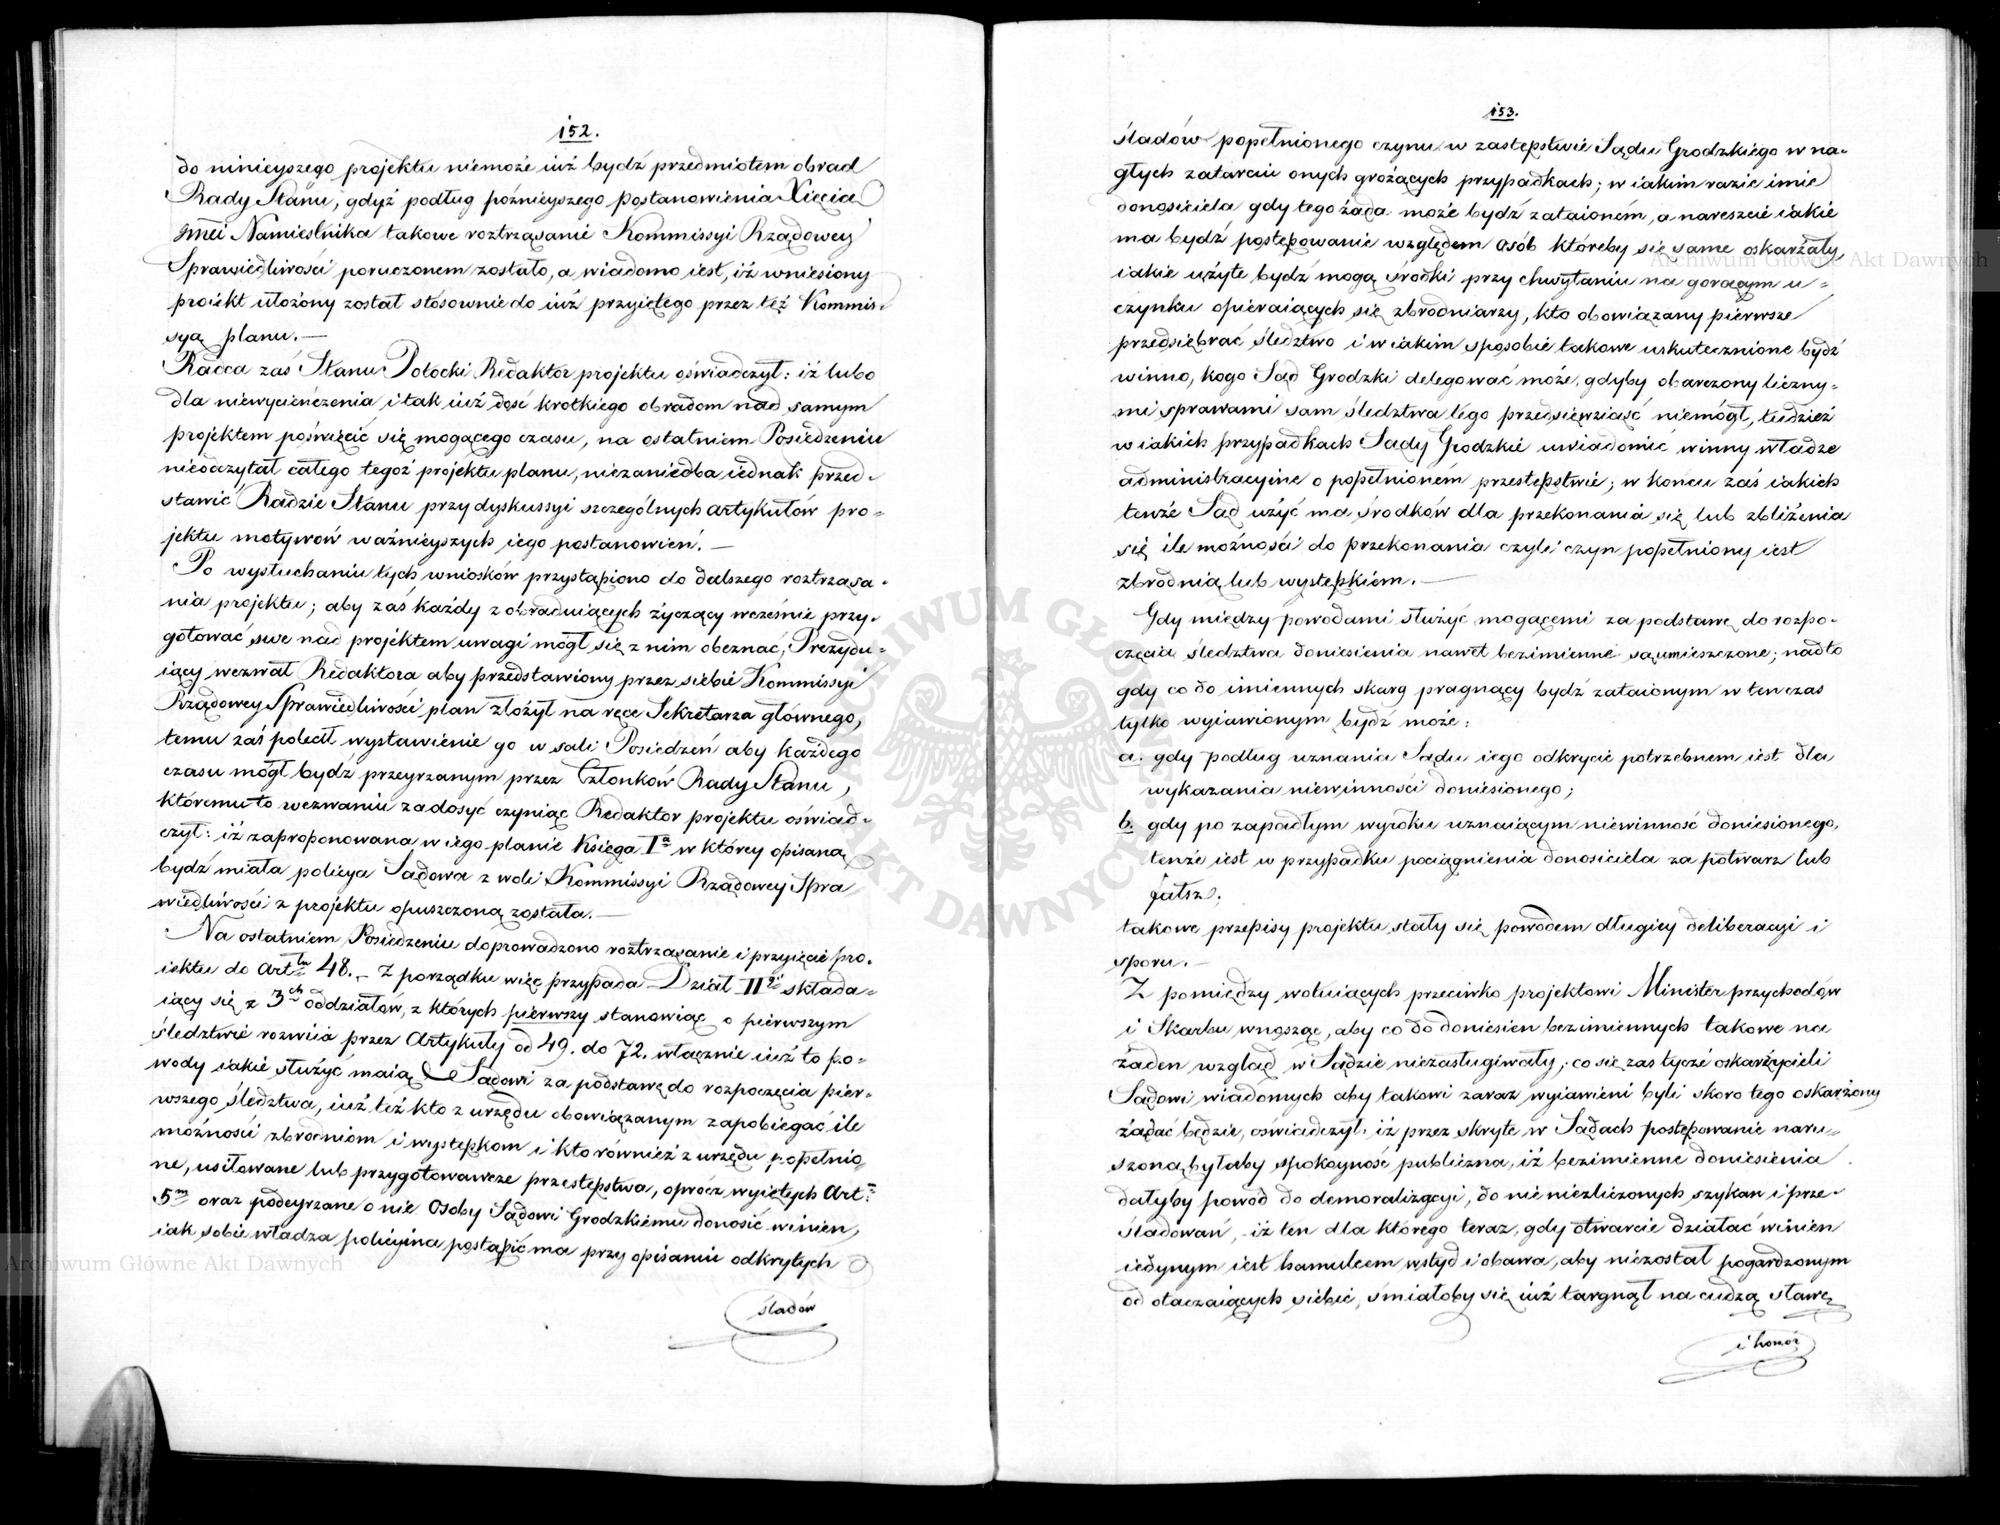 152.
do ninieyszego projektu niemoże iuż bydź przedmiotem obrad
Rady Stanu, gdyż podług poźnieyszego postanowienia Xięcia
Jmci Namiestnika takowe roztrząsanie Kommissyi Rządowey
Sprawiedliwości poruczonem zostało, a wiadomo iest, iż wniesiony
projekt ułożony został stosownie do iuż przyiętego przez też Kommis-
syą planu. —
Radca zaś Stanu Potocki Redaktor projektu oświadczył: iż lubo
dla niewycieńczenia i tak iuż dość krotkiego obradom nad samym
projektem poświęcić się mogącego czasu, na ostatniem Posiedzeniu
nieodczytał całego tegoż projektu planu, niezaniedba iednak przed-
stawić Radzie Stanu przy dyskussyi szczególnych artykułów pro-
jektu motywów ważnieyszych iego postanowień. —
Po wysłuchaniu tych wniosków przystąpiono do dalszego roztrząsa-
nia projektu; aby zaś każdy z obraduiących życzący wcześnie przy-
gotować swe nad projektem uwagi mógł się z nim obeznać, Prezydu-
iący wezwał Redaktora aby przedstawiony przez siebie Kommissyi
Rządowey Sprawiedliwości plan złożył na ręce Sekretarza głównego,
temu zaś polecił wystawienie go w sali Posiedzeń aby każdego
czasu mógł bydz przeyrzanym przez Członków Rady Stanu,
któremu to wezwaniu zadosyć czyniąc Redaktor projektu oświad-
czył: iż zaproponowana w iego planie Księga Iª w którey opisaną
bydź miała policya Sądowa z woli Kommissyi Rządowey Spra
wiedliwości z projektu opuszczoną została. —
Na ostatniem Posiedzeniu doprowadzono roztrząsanie i przyięcie pro-
iektu do Arttu 48. – Z porządku więc przypada Dział IIgi składa-
iący się z 3ch oddziałów, z których pierwszy stanowiąc o pierwszym
śledztwie rozwiia przez Artykuły od 49. do 72. włącznie iuż to po-
wody iakie służyć maią Sądowi za podstawę do rozpoczęcia pier-
wszego śledztwa, iuż też kto z urzędu obowiązanym zapobiegać ile
możności zbrodniom i występkom i kto również z urzędu popełnio
ne, usiłowane lub przygotowawcze przestępstwa, oprócz wyiętych Artm
5m oraz podeyrzane o nie Osoby Sądowi Grodzkiemu donosić winien,
iak sobie władza policyina postąpić ma przy opisaniu odkrytych
śladów
153.
śladów popełnionego czynu w zastępstwie Sądu Grodzkiego w na-
głych zatarciu onych grożących przypadkach; w iakim razie imie
donosiciela gdy tego żąda może bydź zataionem, a nareszcie iakie
ma bydź postępowanie względem osób któreby się same oskarżały,
iakie użyte bydź mogą środki przy chwytaniu na gorącym u-
czynku opieraiących się zbrodniarzy, kto obowiązany pierwsze
przedsiębrać śledztwo i w iakim sposobie takowe uskutecznione bydź
winno, kogo Sąd Grodzki delegować może, gdyby obarczony liczny-
mi sprawami sam śledztwa tego przedsięwziąść niemógł, tudzież
w iakich przypadkach Sądy Grodzkie uwiadomić winny władze
administracyine o popełnioném przestępstwie; w końcu zaś iakich
tenże Sąd użyć ma środków dla przekonania się lub zbliżenia
się ile możności do przekonania czyli czyn popełniony iest
zbrodnią lub występkiem. —
Gdy między powodami służyć mogącemi za podstawę do rozpo-
częcia śledztwa doniesienia nawet bezimienne są umieszczone; nadto
gdy co do imiennych skarg pragnący bydź zataionym w ten czas
tylko wyiawionym bydź może:
a. gdy podług uznania Sądu iego odkrycie potrzebnem iest dla
wykazania niewinności doniesionego;
b. gdy po zapadłym wyroku uznaiącym niewinność doniesionego,
tenże iest w przypadku pociągnienia donosiciela za potwarz lub
fałsz;
takowe przepisy projektu stały się powodem długiey deliberacyi i
sporu. —
Z pomiędzy wotuiących przeciwko projektowi Minister przychodów
i Skarbu wnosząc, aby co do doniesien bezimiennych takowe na
żaden wzgląd w Sądzie niezasługiwały; co się zas tycze oskarżycieli
Sądowi wiadomych aby takowi zaraz wyiawieni byli skoro tego oskarżony
żądać będzie, oswiadczył: iż przez skryte w Sądach postępowanie naru-
szoną byłaby spokoyność publiczna, iż bezimienne doniesienia
dałyby powód do demoralizacyi, do nie niezliczonych szykan i prze-
śladowań, iż ten dla którego teraz, gdy otwarcie działać winien
iedynym iest hamulcem wstyd i obawa, aby niezostał pogardzonym
od otaczaiących siebie, śmiałoby się iuż targnął na cudzą sławę
i honor
Archiwum Główne Akt Dawnych
Archiwum Główne Akt Dawnych
ARCHIWUM GŁÓWNE AKT DAWNYCH